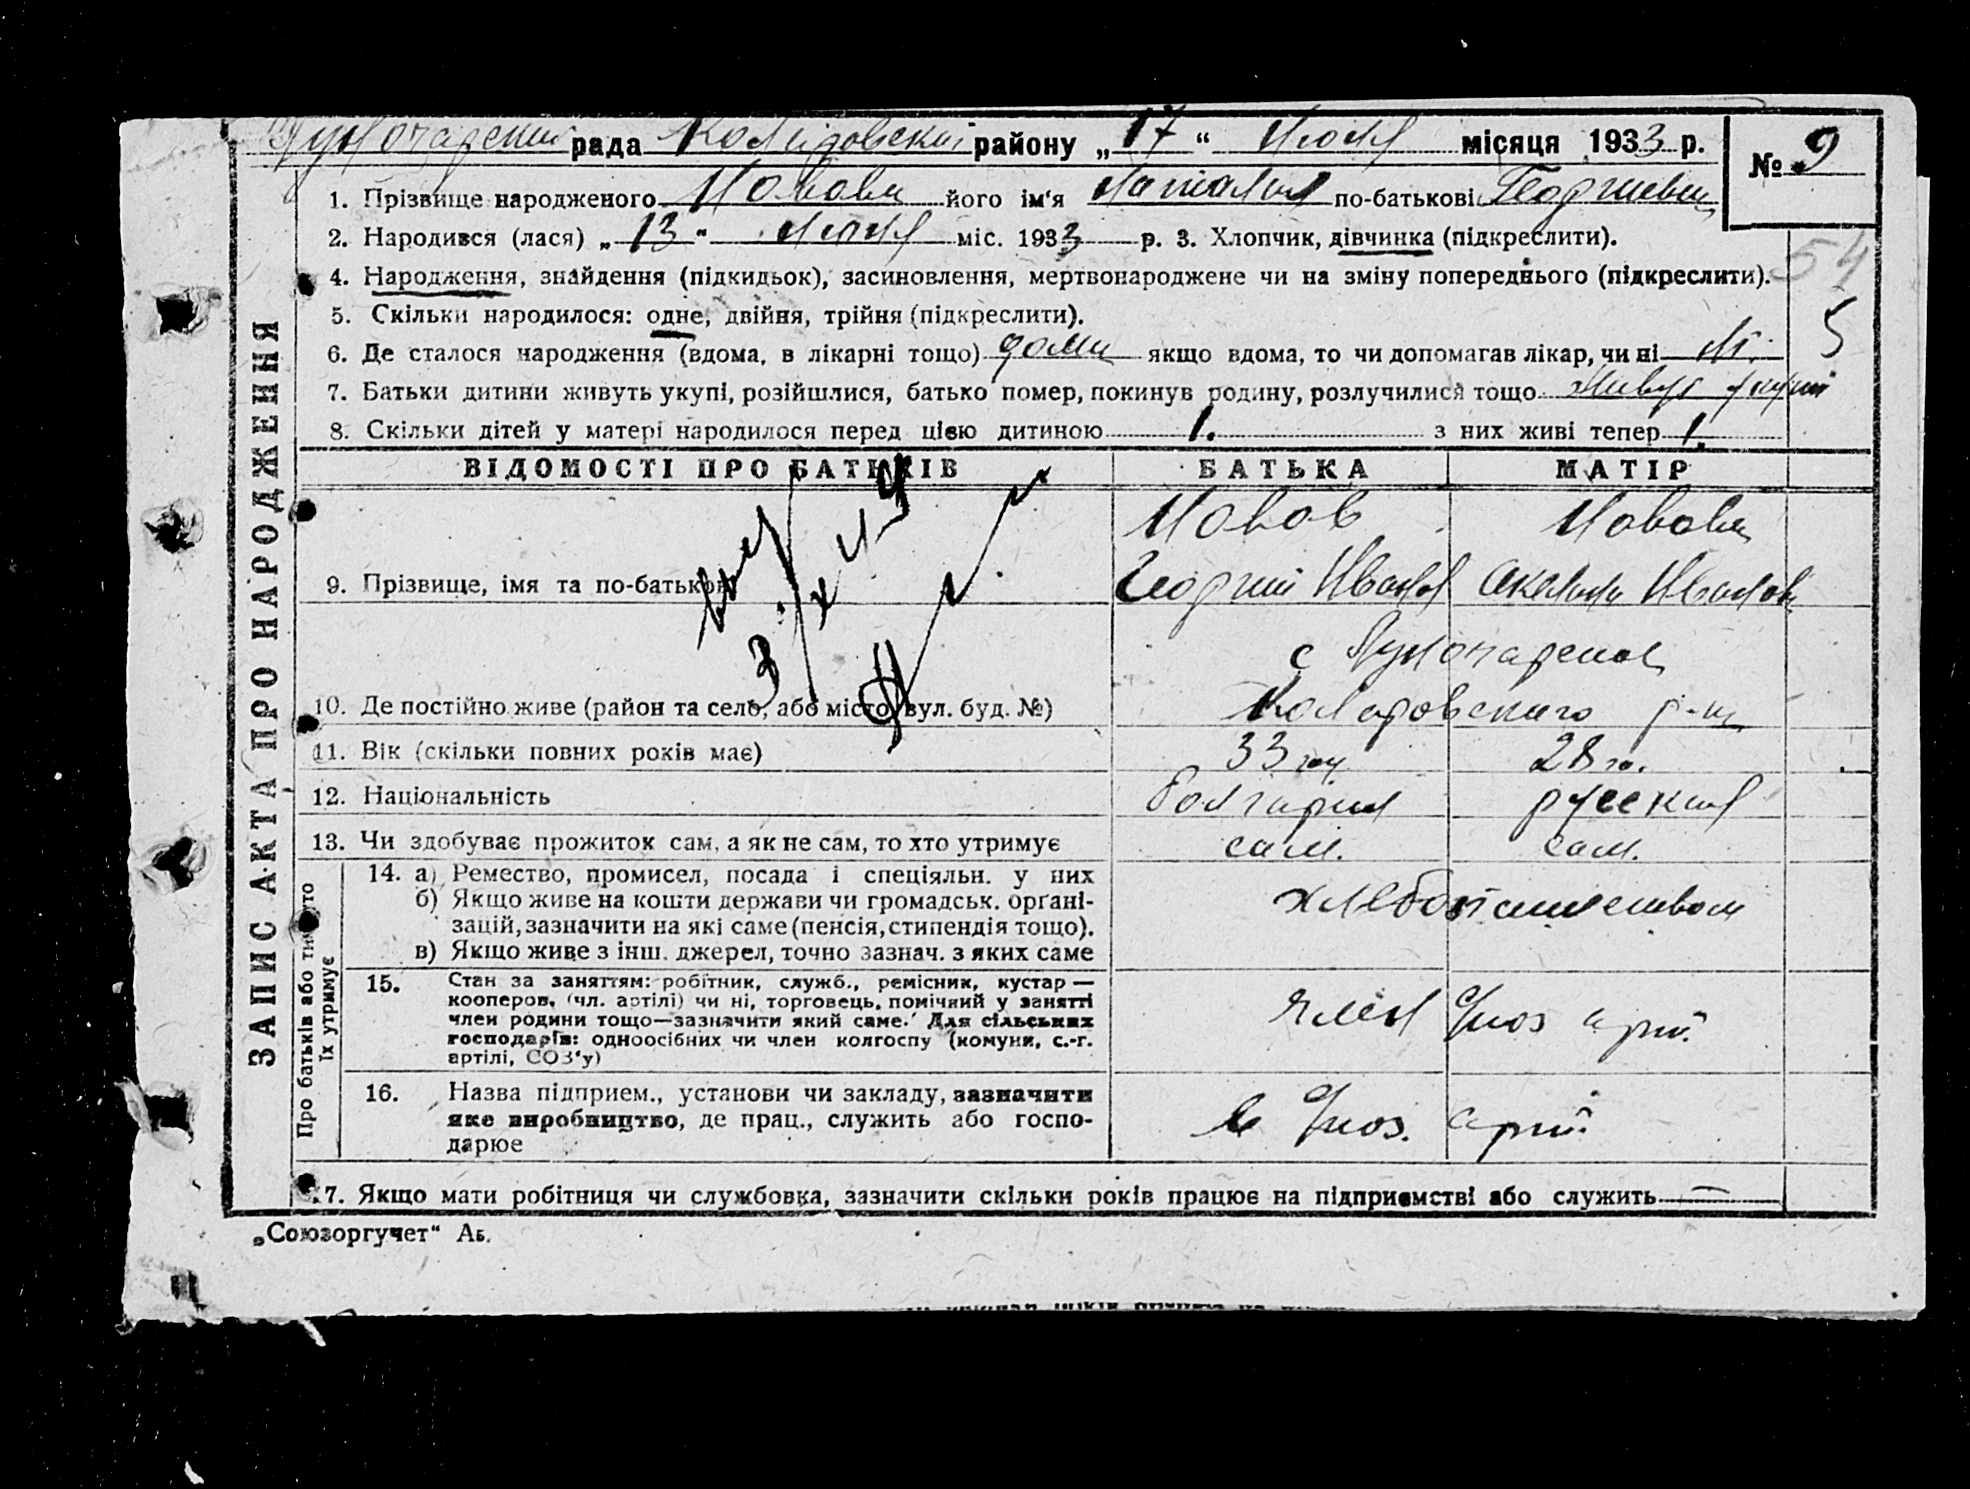 Луночарский рада Коларовский району „17“ Июня місяця 1933 р. № 9
1. Прізвище народженого Новова його ім'я Наталия по-батькові Георгиевна
2. Народився (лася) „13“ Июня міс. 1933 р. 3. Хлопчик, дівчинка (підкреслити).
54
4. Народження, знайдення (підкидьок), засиновлення, мертвонароджене чи на зміну попереднього (підкреслити).
5. Скільки народилося: одне, двійня, трійня (підкреслити).
5
6. Де сталося народження (вдома, в лікарні тощо) дома якщо вдома, то чи допомагав лікар, чи ні
7. Батьки дитини живуть укупі, розійшлися, батько помер, покинув родину, розлучилися тощо Живут
8. Скільки дітей у матері народилося перед цією дитиною 1. з них живі тепер 1.
ЗАПИС АКТА ПРО НАРОДЖЕННЯ
ВІДОМОСТІ ПРО БАТЬКІВ БАТЬКА МАТІР
Новов Новова
9. Прізвище, імя та по-батькові Георгий Иванов Акелина Иванов
с Луночарсков
10. Де постійно живе (район та село, або місто, вул. буд. №) Коларовского р-на
11. Вік (скільки повних років має) 33 год 28 го.
12. Національність болгарин русская
13. Чи здобуває прожиток сам, а як не сам, то хто утримує сам. сам.
Про батьків або тих, хто
їх утримує
14. а) Ремество, промисел, посада і спеціяльн. у них
б) Якщо живе на кошти держави чи громадськ. орґані-
зацій, зазначити на які саме (пенсія, стипендія тощо).
в) Якщо живе з інш. джерел, точно зазнач. з яких саме
хлебопашеством
15. Стан за заняттям: робітник, служб., ремісник, кустар —
кооперов. (чл. артілі) чи ні, торговець, помічний у занятті
член родини тощо—зазначити який саме. Для сільських
господарів: одноосібних чи член колгоспу (комуни, с.-г.
артілі, СОЗ'у)
член
16. Назва підприєм., установи чи закладу, зазначити
яке виробництво, де прац., служить або госпо-
дарює
в
17. Якщо мати робітниця чи службовка, зазначити скільки років працює на підприємстві або служить —
„Союзоргучет“ Аб.